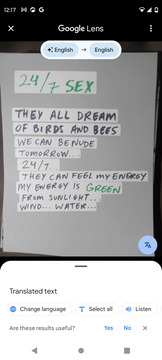 12:17
Google Lens
English → English
24/7 SEX
THEY ALL DREAM
OF BIRDS AND BEES
WE CAN BE NUDE
TOMORROW...
24/7.
THEY CAN FEEL MY ENERGY
MY ENERGY IS GREEN
FROM SUNLIGHT...
WIND... WATER...
Translated text
Change language
Select all
Listen
Are these results useful?
Yes
No